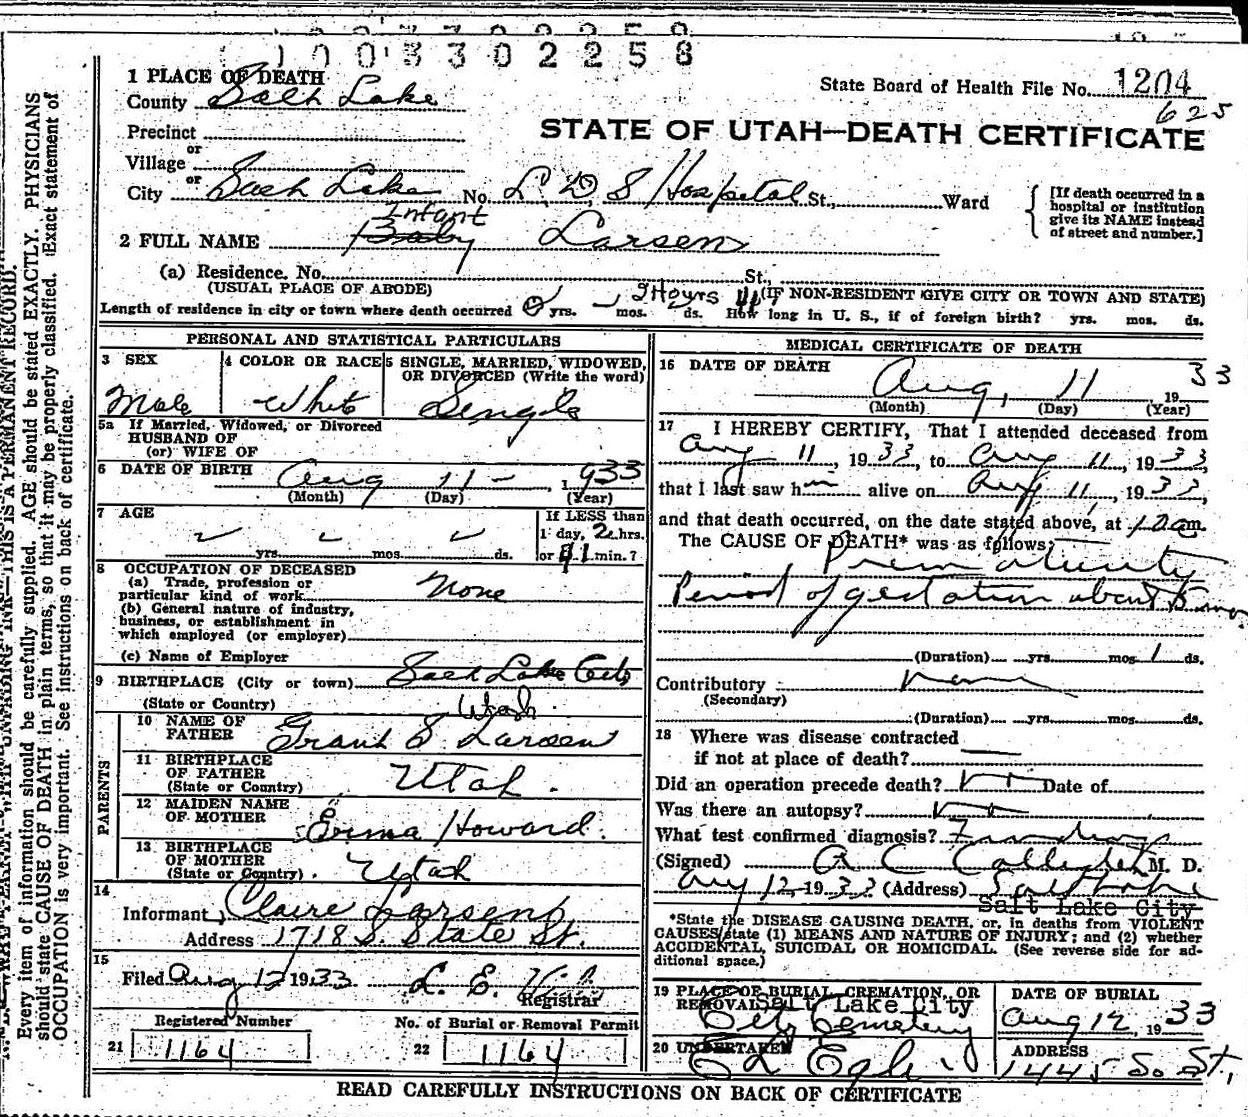 1003302258
1 PLACE OF DEATH
County Salt Lake
State Board of Health File No. 1204
625
Precinct
or
Village
STATE OF UTAH—DEATH CERTIFICATE
or
City Salt Lake No. L.D.S Hospital St., Ward
[If death occurred in a
hospital or institution
give its NAME instead
of street and number.]
Infant
2 FULL NAME Baby Larsen
(a) Residence. No. St.,
(USUAL PLACE OF ABODE)
(IF NON-RESIDENT GIVE CITY OR TOWN AND STATE)
2 Hours
Length of residence in city or town where death occurred yrs. mos. ds. How long in U. S., if of foreign birth? yrs. mos. ds.
PERSONAL AND STATISTICAL PARTICULARS
3 SEX
Male
4 COLOR OR RACE
White
5 SINGLE, MARRIED, WIDOWED,
OR DIVORCED (Write the word)
Single
5a If Married, Widowed, or Divorced
HUSBAND OF
(or) WIFE OF
6 DATE OF BIRTH Aug 11 - 1933
(Month) (Day) (Year)
7 AGE
yrs. mos. ds.
If LESS than
1 day, 2 hrs.
or min.?
8 OCCUPATION OF DECEASED
(a) Trade, profession or
particular kind of work None
(b) General nature of industry,
business, or establishment in
which employed (or employer)
(c) Name of Employer
9 BIRTHPLACE (City or town) Salt Lake City
(State or Country) Utah
PARENTS
10 NAME OF
FATHER Grant S Larsen
11 BIRTHPLACE
OF FATHER
(State or Country) Utah.
12 MAIDEN NAME
OF MOTHER Erma Howard.
13 BIRTHPLACE
OF MOTHER
(State or Country). Utah
14
Informant Claire Larsen
Address 1718 S. State St.
15
Filed Aug 12 1933 L. E.
Registrar
Registered Number
21 1164
No. of Burial or Removal Permit
22 1164
MEDICAL CERTIFICATE OF DEATH
16 DATE OF DEATH
Aug, 11 1933
(Month) (Day) (Year)
17 I HEREBY CERTIFY, That I attended deceased from
Aug 11, 1933, to Aug 11, 1933,
that I last saw h alive on Aug, 11, 1933,
and that death occurred, on the date stated above, at m.
The CAUSE OF DEATH* was as follows:
Prematurity
Period of gestation about 5 mos
(Duration) yrs. mos. 1 ds.
Contributory
(Secondary)
(Duration) yrs. mos. ds.
18 Where was disease contracted
if not at place of death?
Did an operation precede death? no Date of
Was there an autopsy? no
What test confirmed diagnosis? Findings
(Signed) A C Callister M. D.
Aug 12 1933 (Address) Salt Lake
Salt Lake City
*State the DISEASE CAUSING DEATH, or, in deaths from VIOLENT
CAUSES, state (1) MEANS AND NATURE OF INJURY; and (2) whether
ACCIDENTAL, SUICIDAL OR HOMICIDAL. (See reverse side for ad-
ditional space.)
19 PLACE OF BURIAL, CREMATION, OR
REMOVAL Salt Lake City
City Cemetery
DATE OF BURIAL
Aug 12, 1933
20 UNDERTAKER
ADDRESS
1445 So St,
READ CAREFULLY INSTRUCTIONS ON BACK OF CERTIFICATE
Every item of information should be carefully supplied. AGE should be stated EXACTLY. PHYSICIANS
should state CAUSE OF DEATH in plain terms, so that it may be properly classified. Exact statement of
OCCUPATION is very important. See instructions on back of certificate.
THIS IS A PERMANENT RECORD.